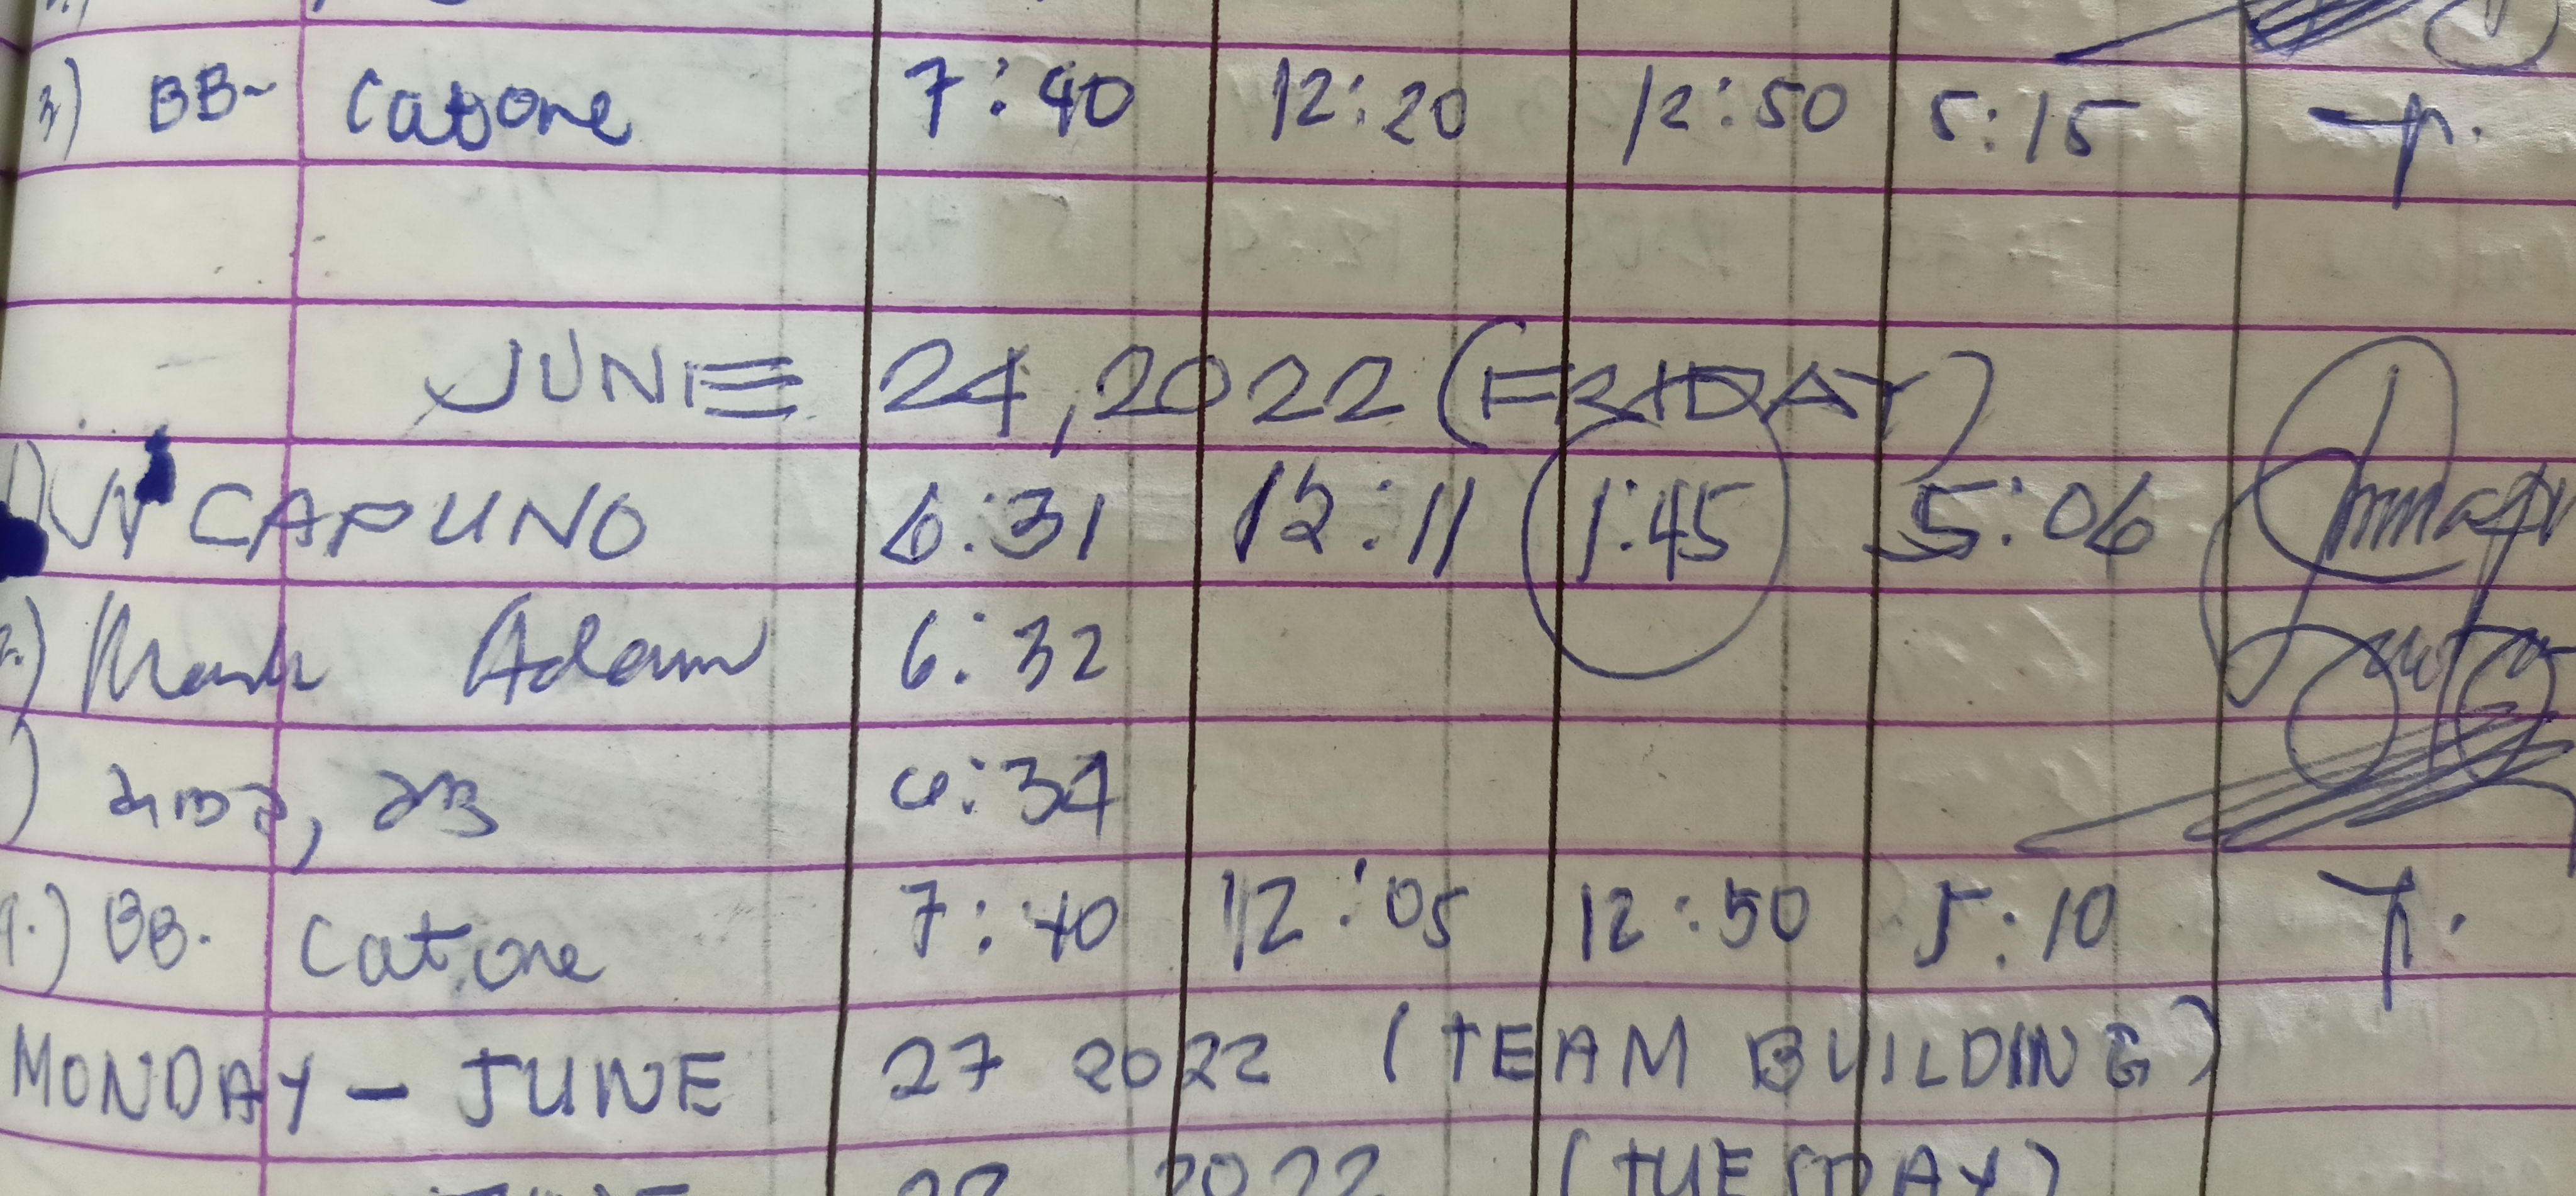 3) BB- Catone 7:40 12:20 12:50 5:15
JUNE 24, 2022 (FRIDAY)
1) VI CAPUNO 6:31 12:11 1:45 5:06
2.) Mark Adam 6:32
) 6:34
4.) BB. Catone 7:40 12:05 12:50 5:10
MONDAY - JUNE 27 2022 (TEAM BUILDING)
2022 (TUESDAY)